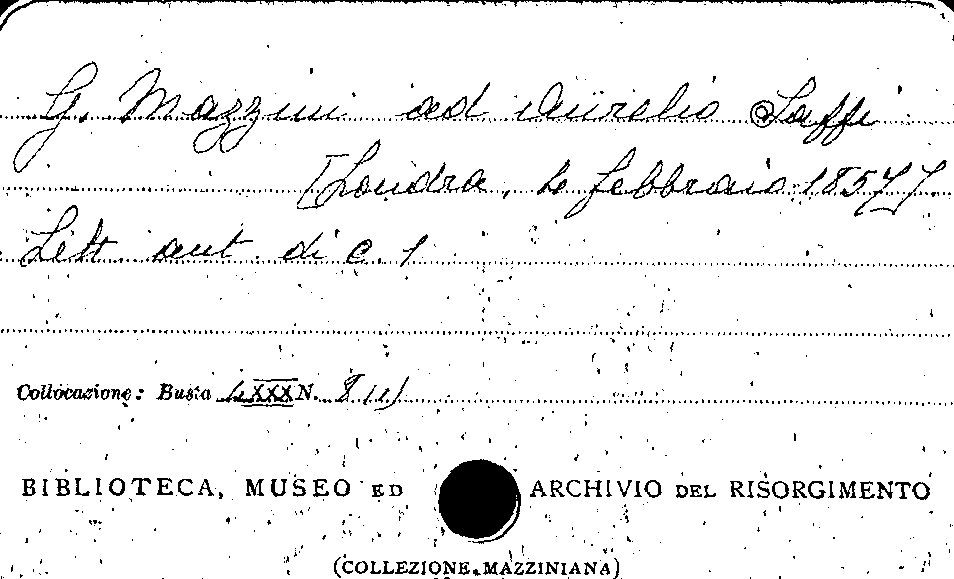 G. Mazzini ad Aurelio Saffi
[Londra, febbraio 1857]
Lett. aut. di c. 1
Collocazione: Busta XXX N.
BIBLIOTECA, MUSEO ED ARCHIVIO DEL RISORGIMENTO
(COLLEZIONE MAZZINIANA)